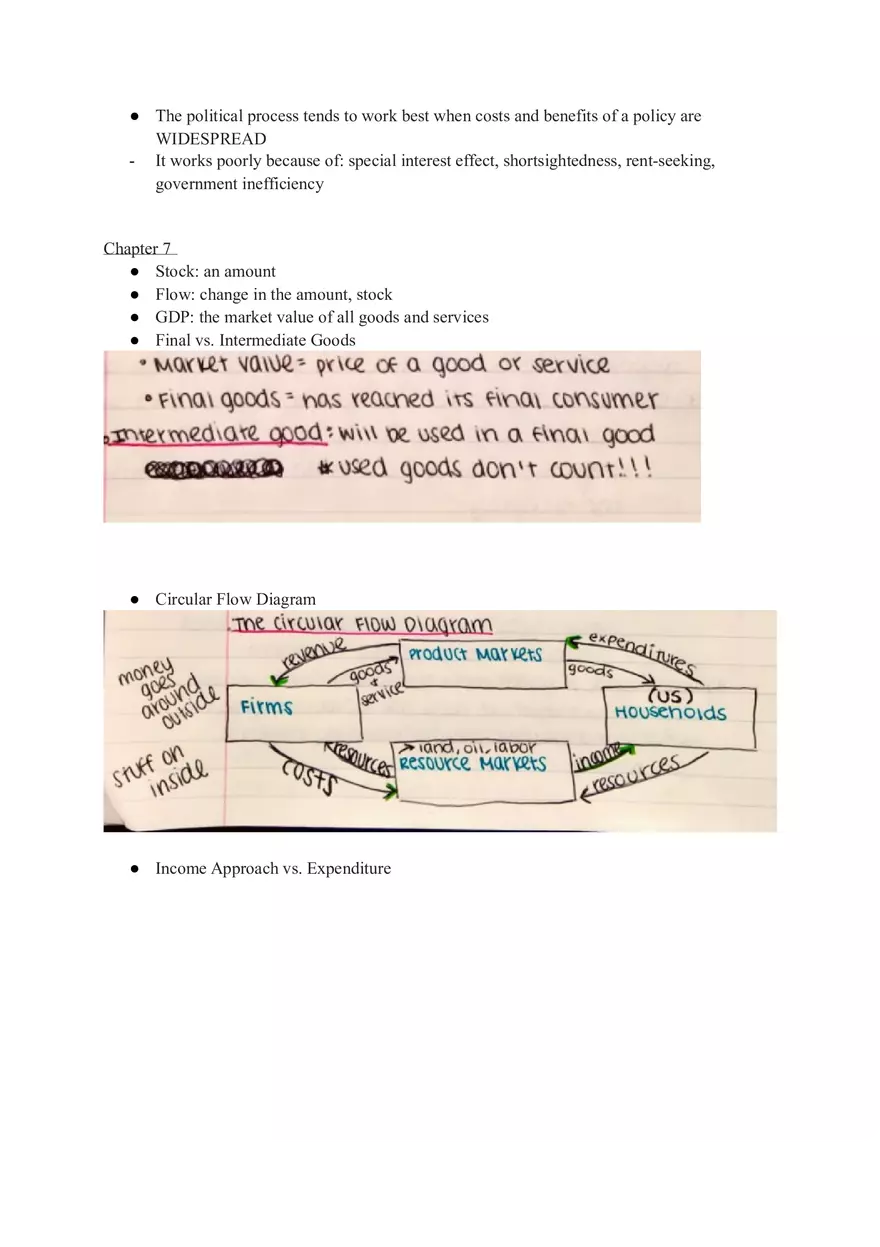 ● The political process tends to work best when costs and benefits of a policy are
WIDESPREAD
- It works poorly because of: special interest effect, shortsightedness, rent-seeking,
government inefficiency
Chapter 7
● Stock: an amount
● Flow: change in the amount, stock
● GDP: the market value of all goods and services
● Final vs. Intermediate Goods
• Market value = price of a good or service
• Final goods = has reached its final consumer
• Intermediate good: will be used in a final good
* used goods don't count!!!
● Circular Flow Diagram
The Circular Flow Diagram
money
goes
around
outside
stuff on
inside
revenue
Product Markets
expenditures
goods
+
service
goods
Firms
(US)
Households
resources
→ land, oil, labor
Resource Markets
income
costs
resources
● Income Approach vs. Expenditure